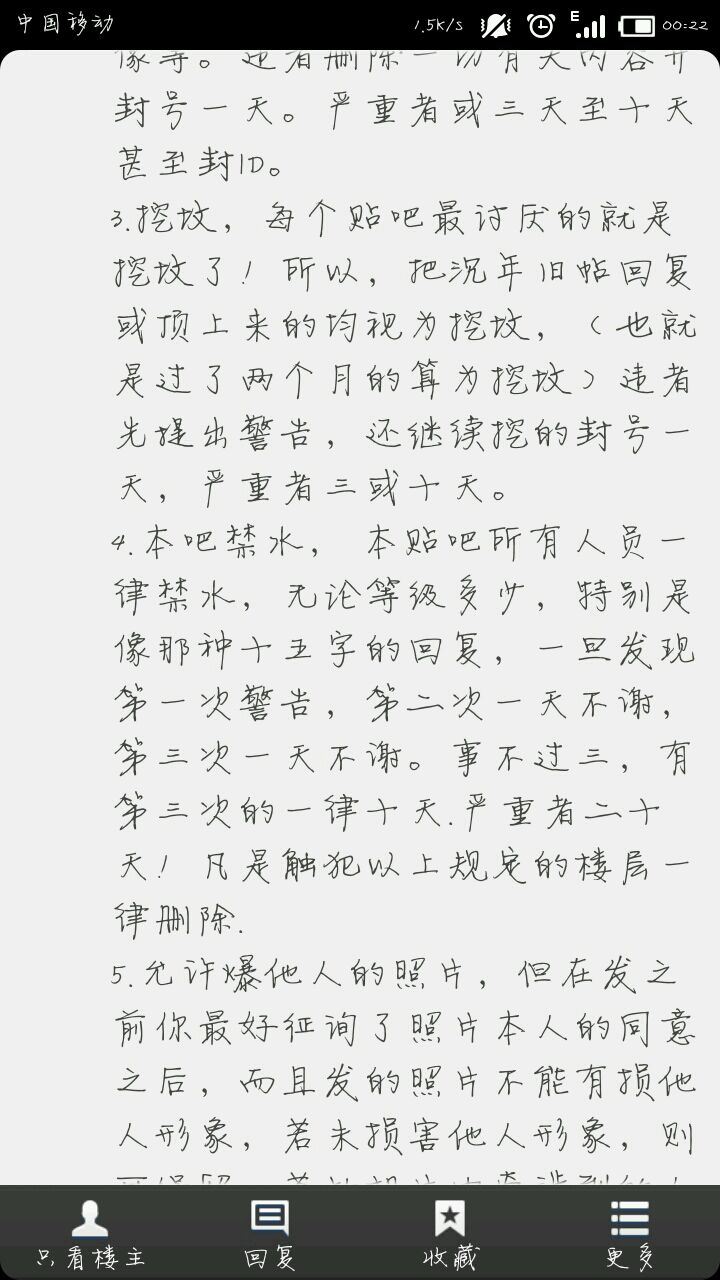 中国移动 1.5K/S E 00:22
像等。违者删除一切有关内容并
封号一天。严重者或三天至十天
甚至封ID。
3.挖坟，每个贴吧最讨厌的就是
挖坟了！所以，把沉年旧帖回复
或顶上来的均视为挖坟，（也就
是过了两个月的算为挖坟）违者
先提出警告，还继续挖的封号一
天，严重者三或十天。
4.本吧禁水， 本贴吧所有人员一
律禁水，无论等级多少，特别是
像那种十五字的回复，一旦发现
第一次警告，第二次一天不谢，
第三次一天不谢。事不过三，有
第三次的一律十天.严重者二十
天！凡是触犯以上规定的楼层一
律删除.
5.允许爆他人的照片，但在发之
前你最好征询了照片本人的同意
之后，而且发的照片不能有损他
人形象，若未损害他人形象，则
只看楼主 回复 收藏 更多